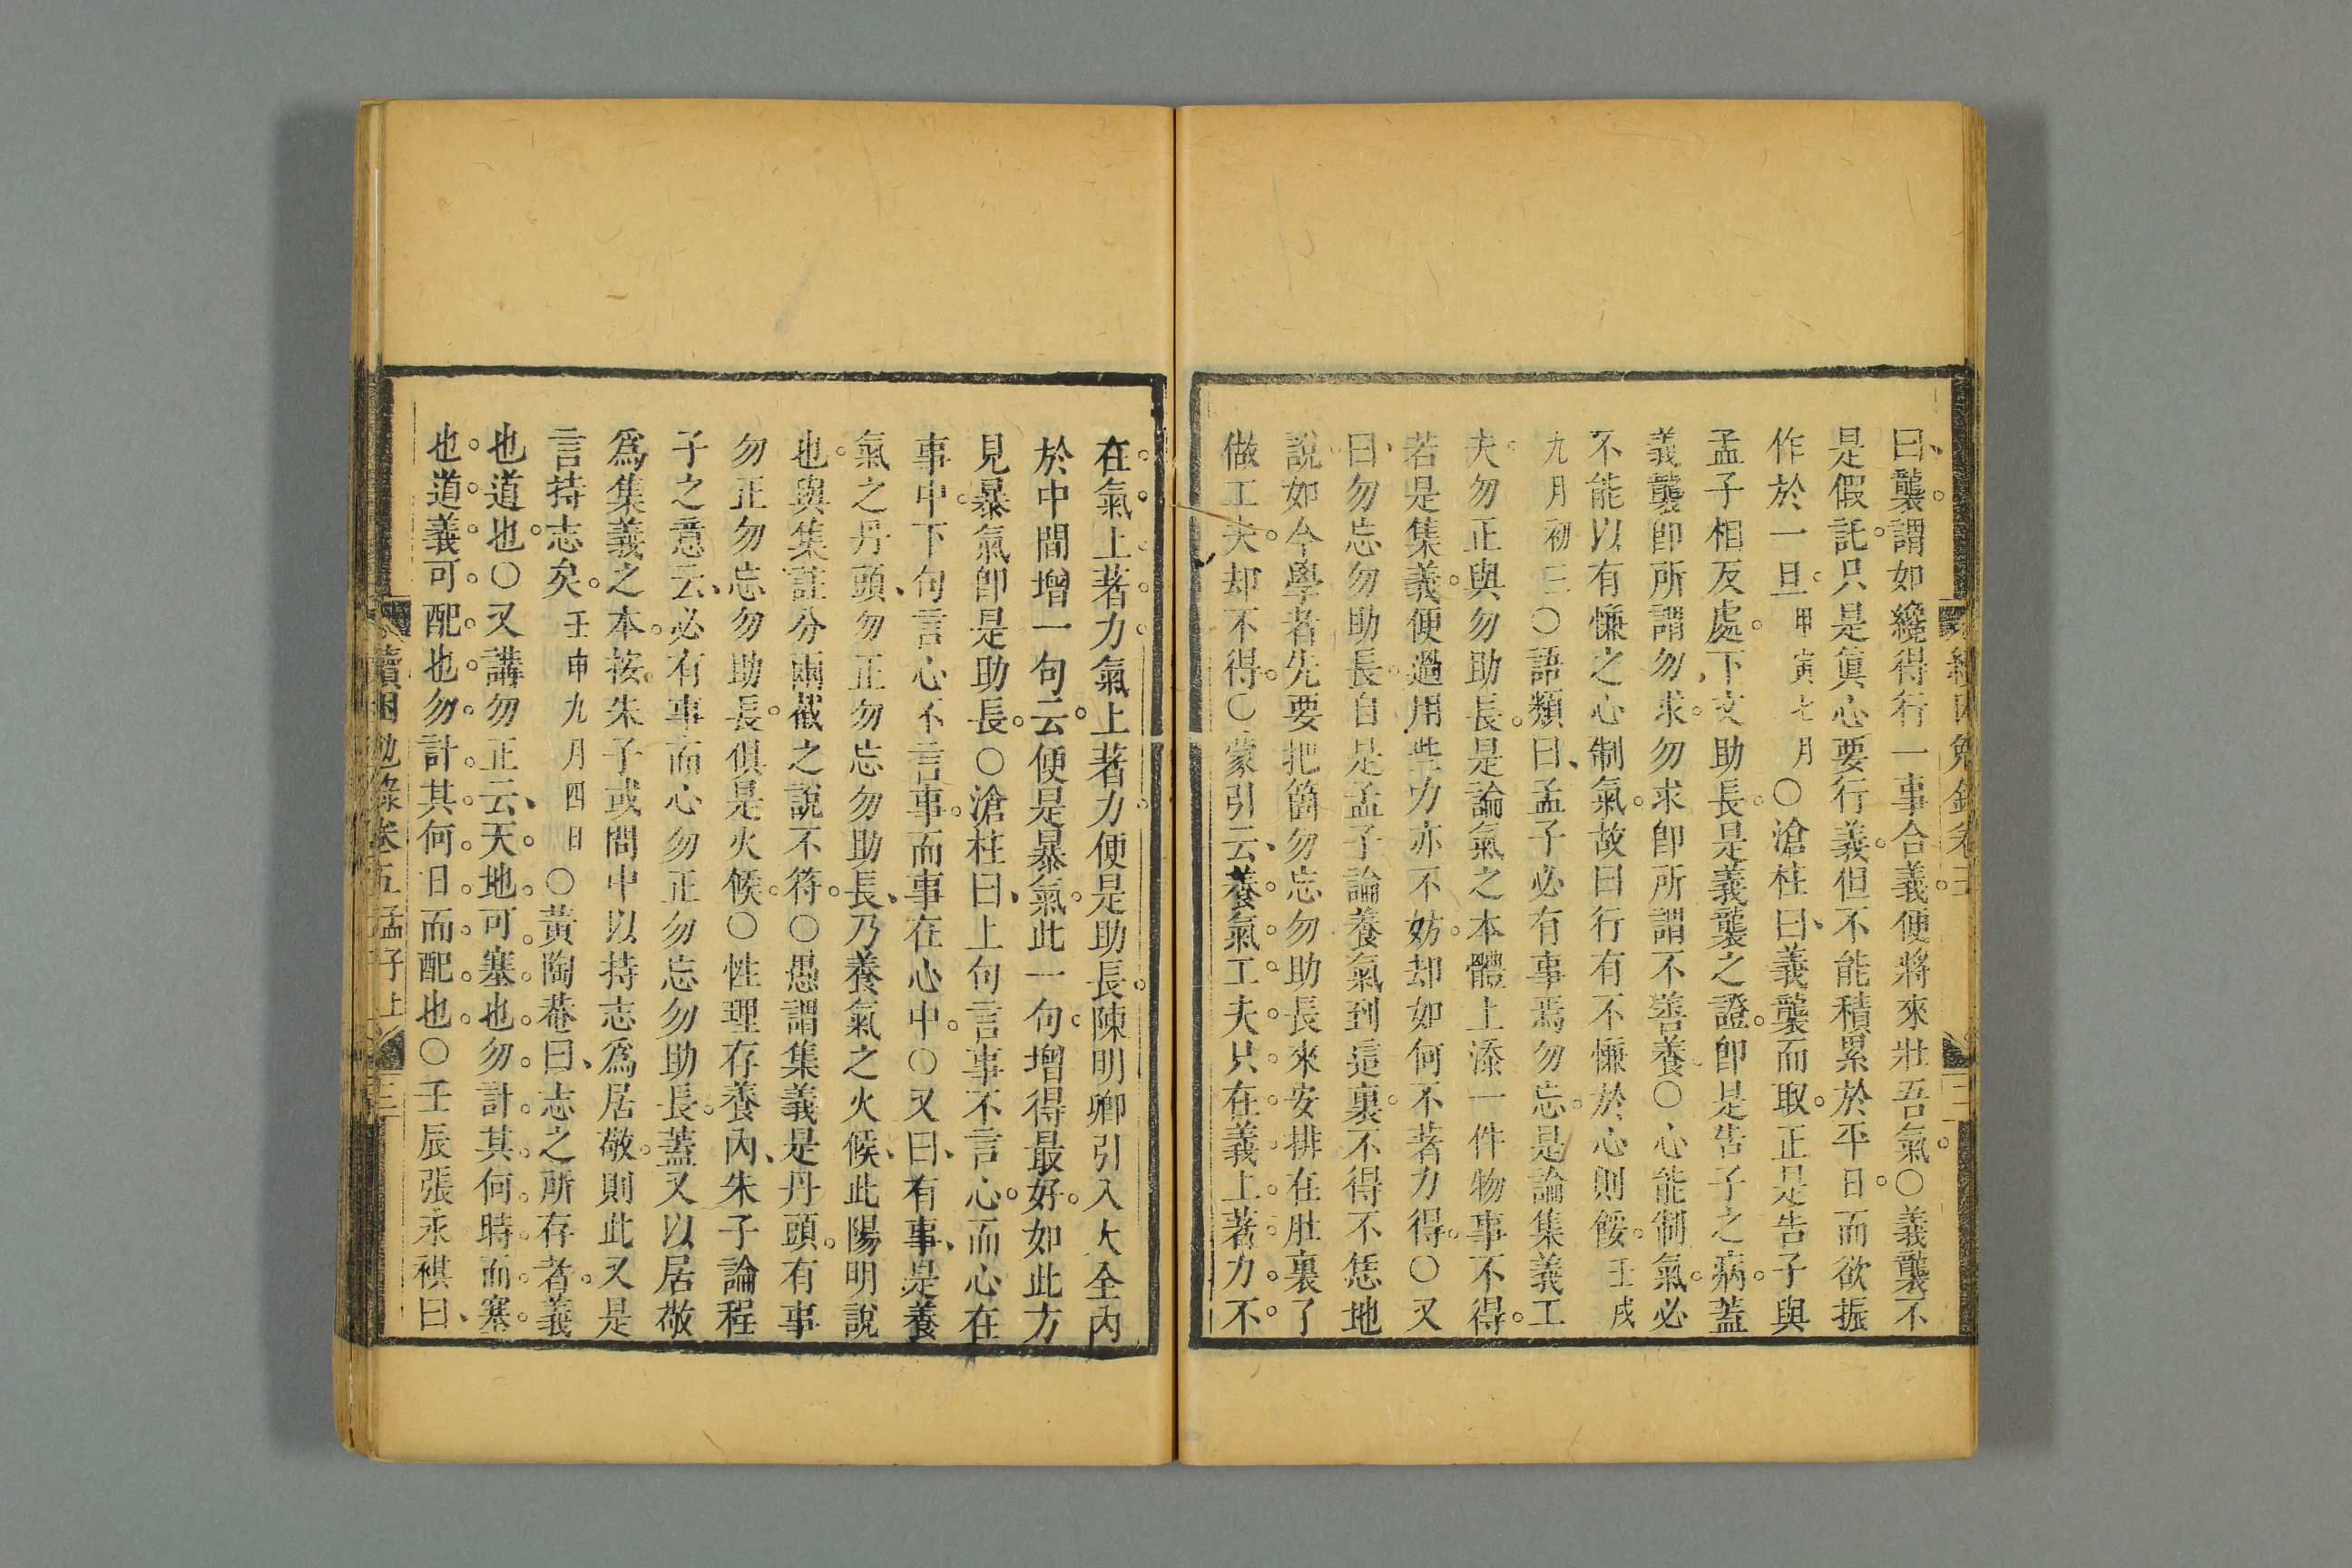 曰襲謂如纔得行一事合義便將來壯吾氣○義襲不
是假託只是眞心要行義但不能積累於平日而欲振
作於一旦甲寅七月○滄柱曰義襲而取正是告子與
孟子相反處下文助長是義襲之證卽是告子之病蓋
義襲卽所謂勿求勿求卽所謂不善養○心能制氣必
不能以有慊之心制氣故曰行有不慊於心則餒壬戌
九月初三○語類曰孟子必有事焉勿忘是論集義工
夫勿正與勿助長是論氣之本體上添一件物事不得
若是集義便過用些力亦不妨却如何不著力得○又
曰勿忘勿助長自是孟子論養氣到這裏不得不恁地
說如今學者先要把箇勿忘勿助長來安排在肚裏了
做工夫却不得○蒙引云養氣工夫只在義上著力不
在氣上著力氣上著力便是助長陳明卿引入大全內
於中間增一句云便是暴氣此一句增得最好如此方
見暴氣卽是助長○滄柱曰上句言事不言心而心在
事中下句言心不言事而事在心中○又曰有事是養
氣之丹頭勿正勿忘勿助長乃養氣之火候此陽明說
也與集註分兩截之說不符○愚謂集義是丹頭有事
勿正勿忘勿助長俱是火候○性理存養內朱子論程
子之意云必有事而心勿正勿忘勿助長蓋又以居敬
爲集義之本按朱子或問中以持志爲居敬則此又是
言持志矣壬申九月四日○黃陶菴曰志之所存者義
也道也○又講勿正云天地可塞也勿計其何時而塞
也道義可配也勿計其何日而配也○壬辰張永祺曰
續困勉錄卷五 孟子上 三